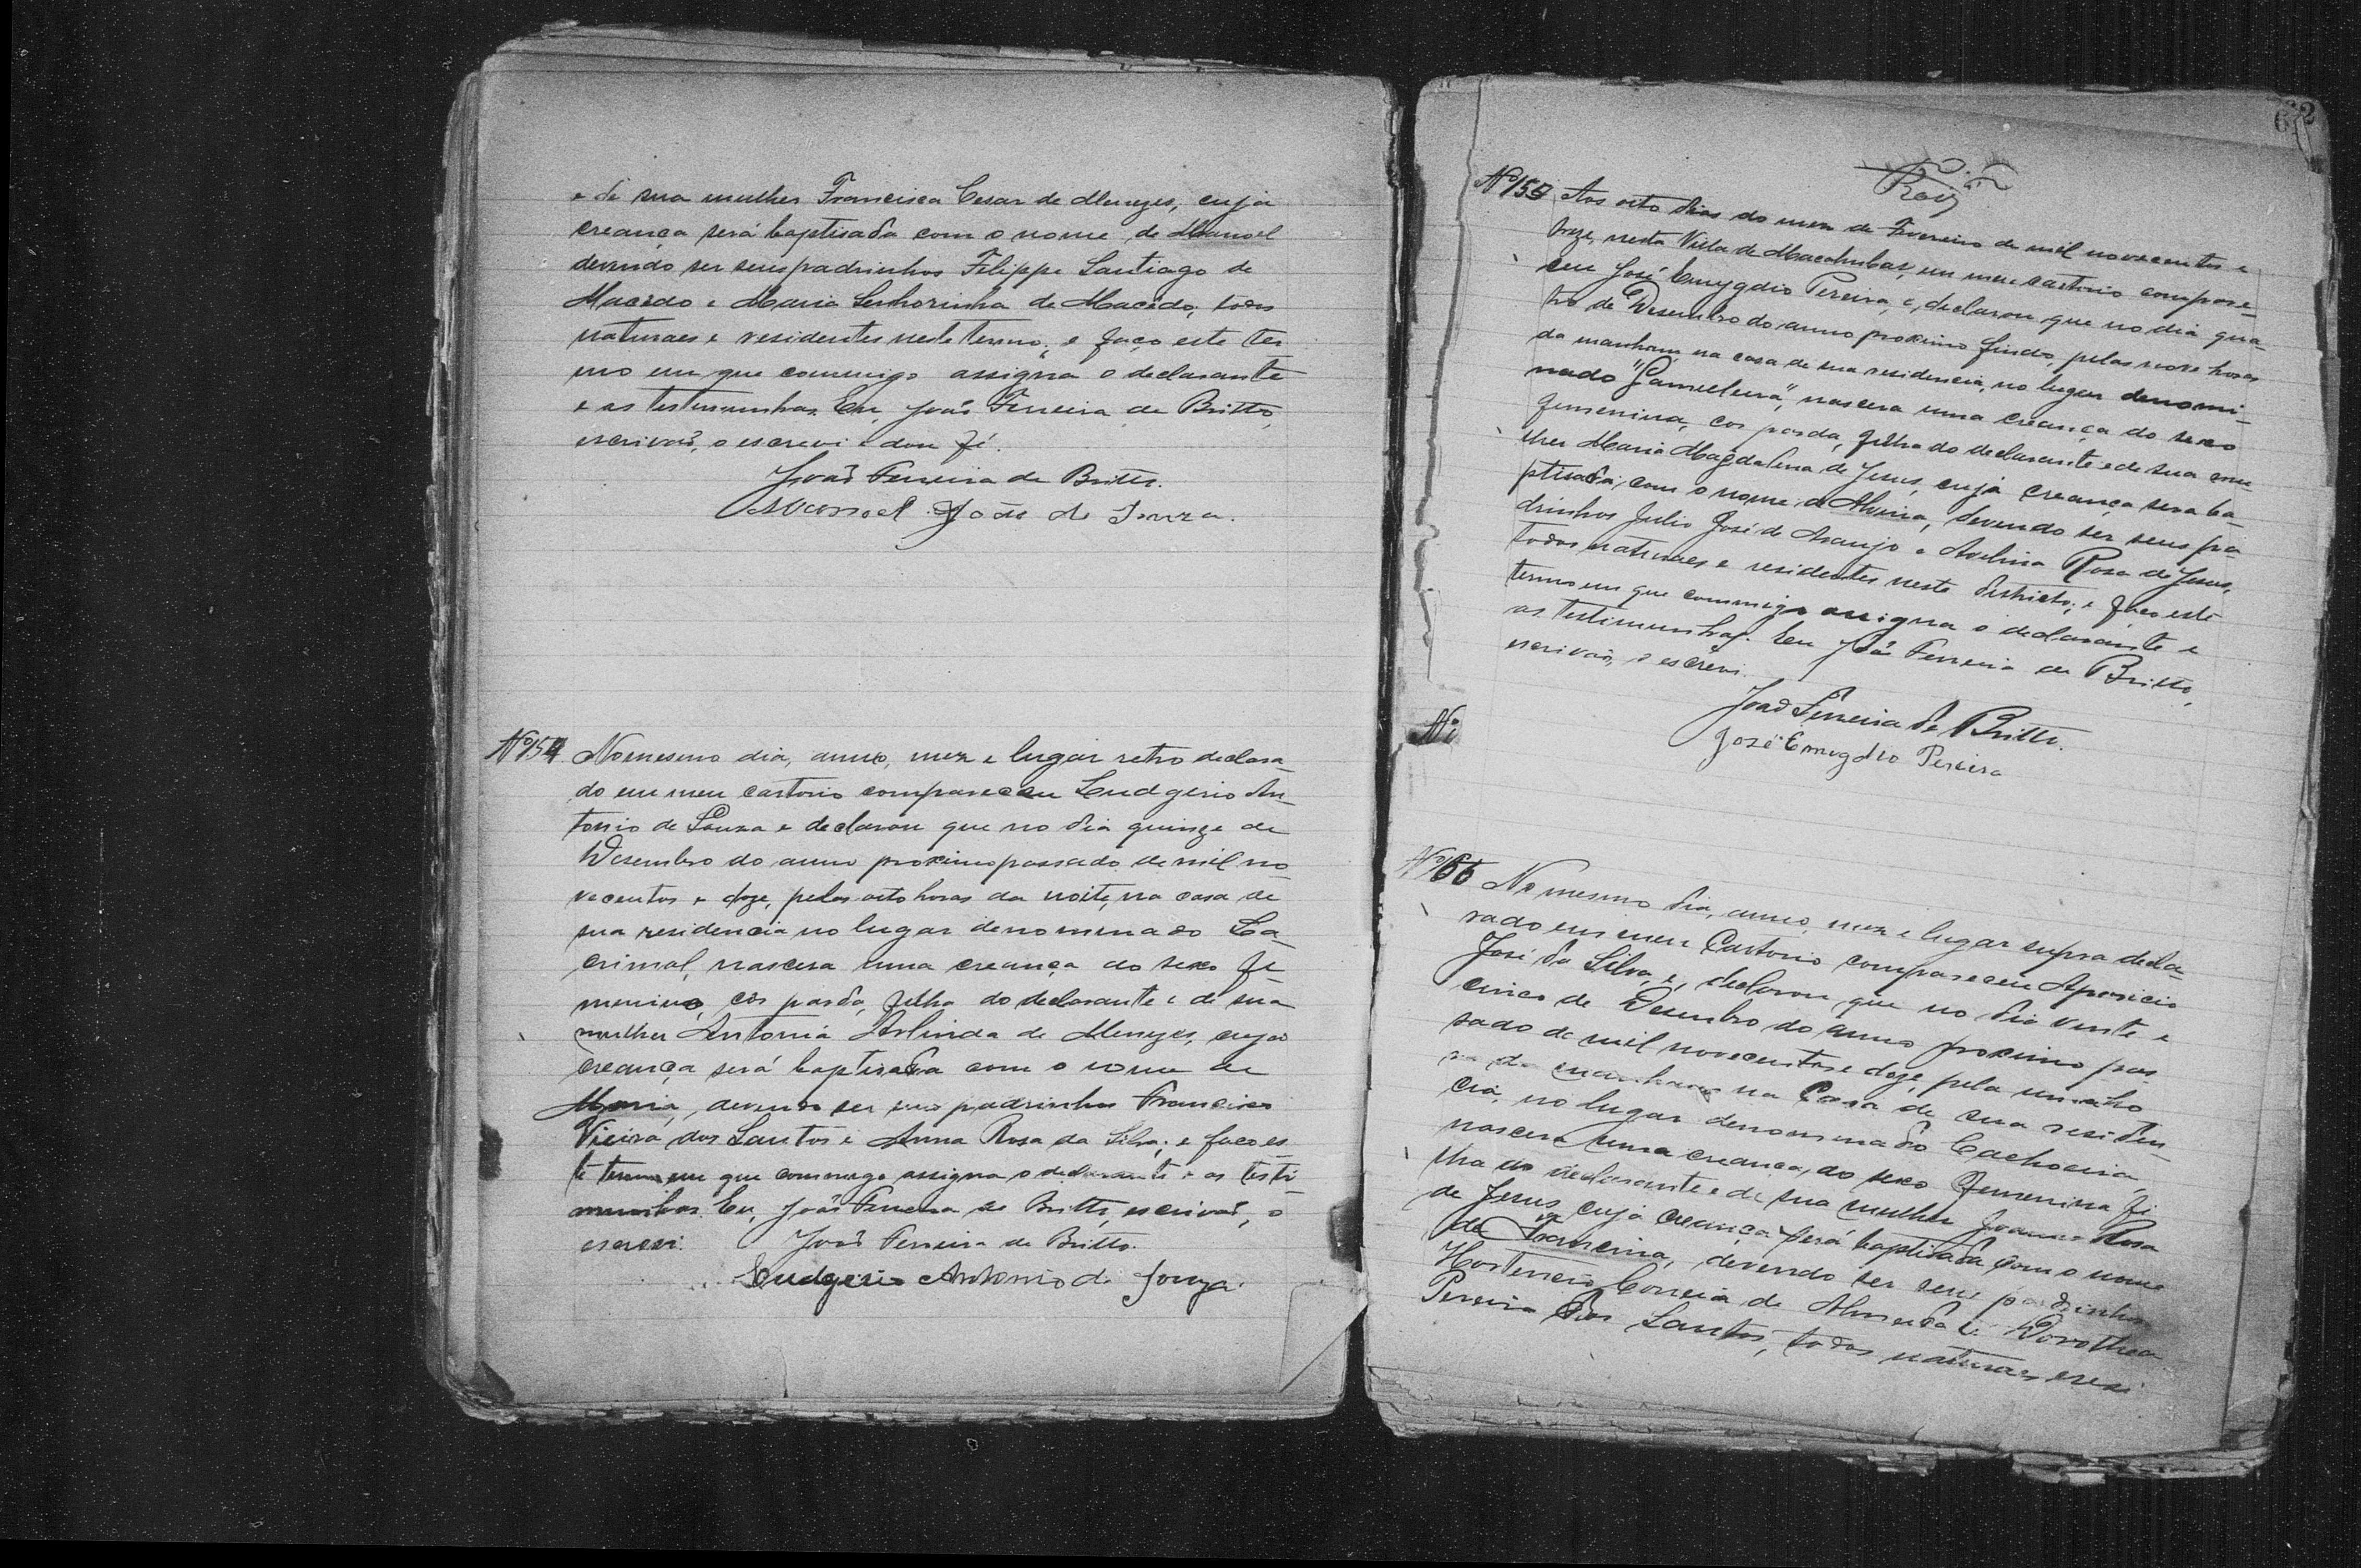 e de sua mulher Francisca Cesar de Menezes, cuja
creança será baptisada com o nome de Manoel
devendo ser seus padrinhos Filippe Santiago de
Macêdo e Maria Senhorinha de Macêdo, todos
naturaes e residentes neste termo; e faço este ter
mo em que commigo assigna o declarante
e as testemunhas. Eu, João Ferreira de Britto,
escrivaõ, o escrevi e dou fé.
João Ferreira de Britto.
Manoel João de Souza.
Nº 154 No mesmo dia, anno, mez e lugar retro declara-
do em meu cartorio compareceu Leudgerio An-
tonio de Souza e declarou que no dia quinze de
Desembro do anno proximo passado de mil no-
vecentos e doze, pelas oito horas da noite, na casa de
sua residencia no lugar denominado La-
crimal, nascera uma creança do sexo fe-
menino, côr parda, filha do declarante e de sua
mulher Antonia Arlinda de Menezes, cuja
creança será baptisada com o nome de
Maria, devendo ser seus padrinhos Francisco
Vieira dos Santos e Anna Rosa da Silva; e faço es-
te termo em que commigo assigna o declarante e as testi-
munhas. Eu, João Ferreira de Britto, escrivaõ, o
escrevi. João Ferreira de Britto.
Leudgerio Antonio de Souza.
62
Nº 155 Aos oito dias do mez de Fevereiro de mil novecentos e
treze, nesta Villa de Macahubas, em meu cartorio compare-
ceu José Emygdio Pereira, e, declarou que no dia qua-
tro de Desembro do anno proximo findo, pelas nove horas
da manham, na casa de sua residencia, no lugar denomi-
nado "Gamelleira", nascera uma creança do sexo
femenina, cor parda, filha do declarante e de sua mu-
lher Maria Magdalena de Jesus, cuja creança sera ba-
ptisada, com o nome de, devendo ser seus pa-
drinhos Julio José de Araujo e Avelina Rosa de Jesus,
todos naturaes e residentes neste districto; e faço este
termo em que commigo assigna o declarante e
as testimunhas. Eu João Ferreira de Britto,
escrivaõ, o escrevi.
João Ferreira de Britto.
José Emygdio Pereira
Nº
Nº 156 No mesmo dia, anno, mez e lugar supra decla-
rado em meu Cartorio compareceu Aparicio
José da Silva, e, declarou que no dia vinte e
cinco de Desembro do anno proximo pas
sado de mil novecentos e doze, pela
da manham na Casa de sua residen-
cia, no lugar denominado Cachoeira,
nascera uma creança, do sexo femenina fi
lha do declarante e de sua mulher Joanna Rosa
de Jesus, cuja creança será baptisada com o nome
de, devendo ser seus padrinhos
Hortencio Correia de Almeida e Dorothea
Pereira dos Santos, todos naturaes e resi